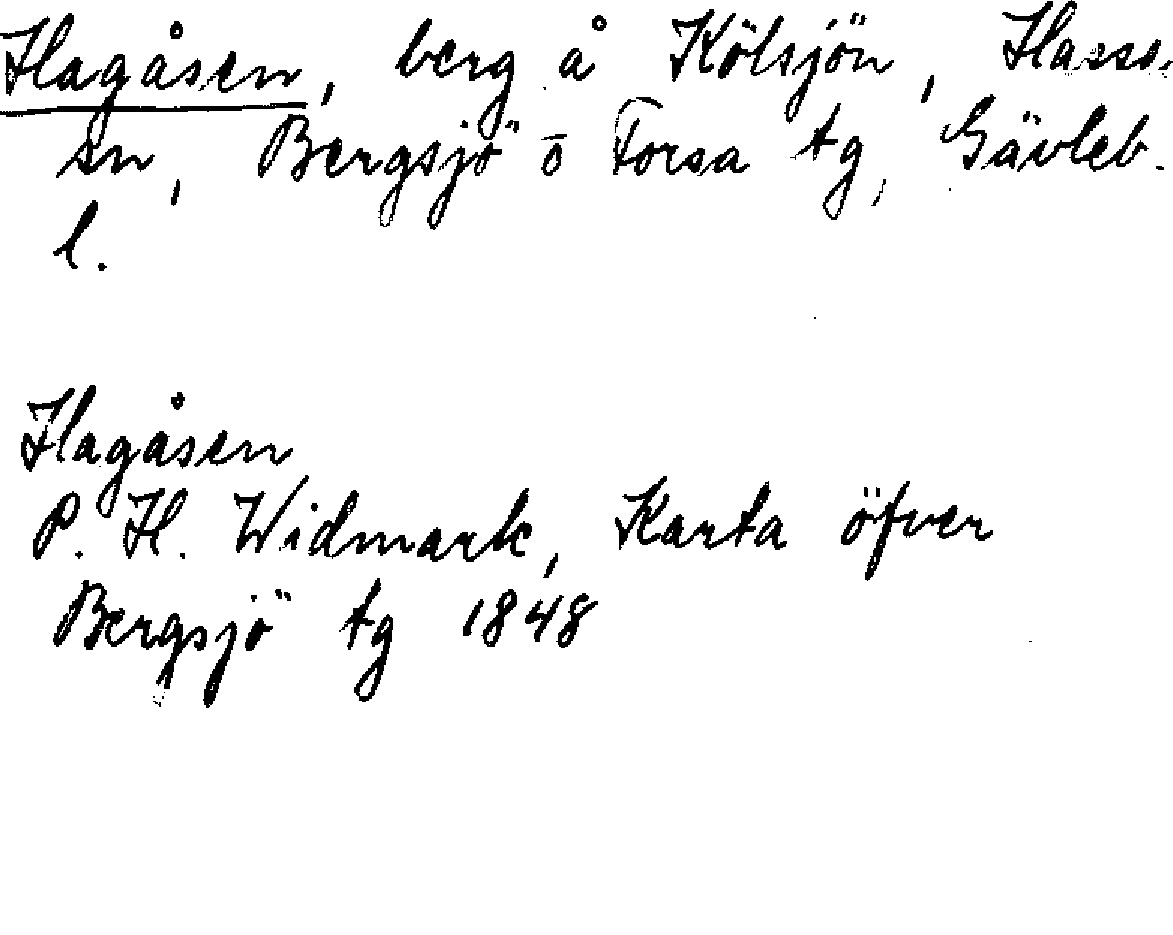 Hagåsen, berg å Kölsjön, Hasse.
sn, Bergsjö o Forsa tg, Gävleb.
l.
Hagåsen
P. H. Widmark, Karta öfver
Bergsjö tg 1848